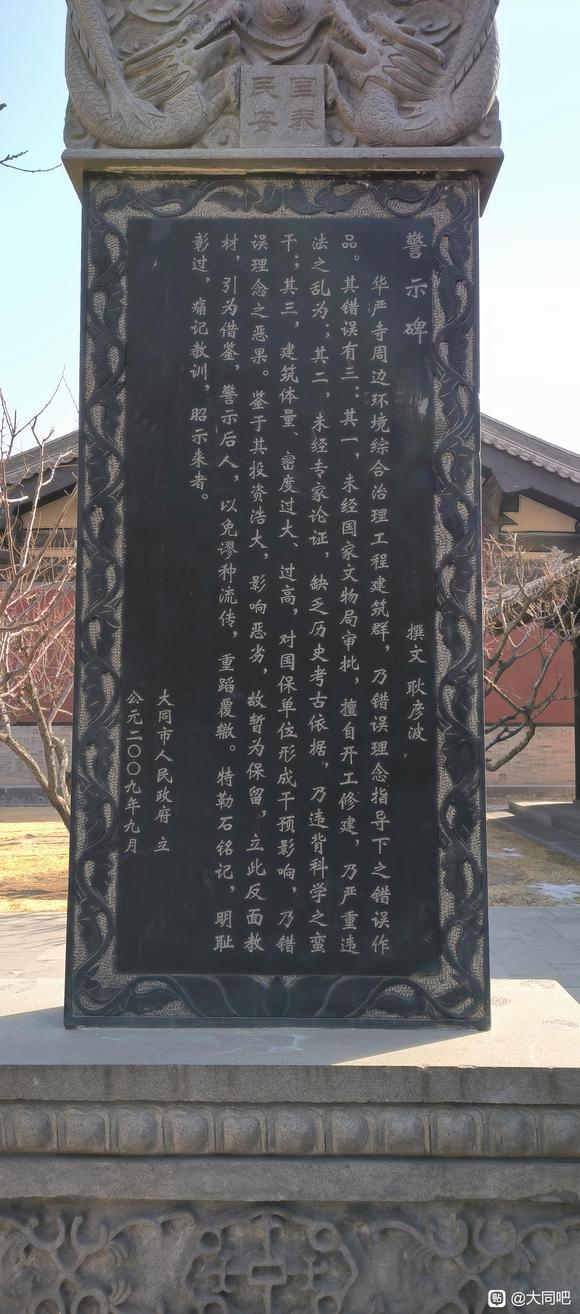 国泰
民安
警示碑
撰文 耿彦波
华严寺周边环境综合治理工程建筑群，乃错误理念指导下之错误作
品。其错误有三：其一，未经国家文物局审批，擅自开工修建，乃严重违
法之乱为；其二，未经专家论证，缺乏历史考古依据，乃违背科学之蛮
干；其三，建筑体量、密度过大、过高，对国保单位形成干预影响，乃错
误理念之恶果。鉴于其投资浩大，影响恶劣，故暂为保留，立此反面教
材，引为借鉴，警示后人，以免谬种流传，重蹈覆辙。特勒石铭记，明耻
彰过，痛记教训，昭示来者。
大同市人民政府 立
公元二〇〇九年九月
贴 @大同吧